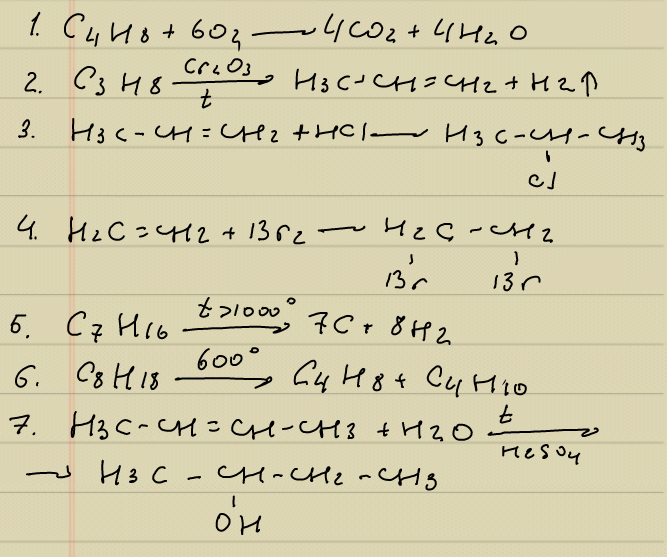 1. C4H8 + 6O2 → 4CO2 + 4H2O
2. C3H8 Cr2O3 t → H3C-CH=CH2 + H2↑
3. H3C-CH=CH2 + HCl → H3C-CH-CH3
Cl
4. H2C=CH2 + Br2 → H2C-CH2
Br Br
5. C7H16 t>1000° → 7C + 8H2
6. C8H18 600° → C4H8 + C4H10
7. H3C-CH=CH-CH3 + H2O t HeSO4 →
→ H3C-CH-CH2-CH3
OH